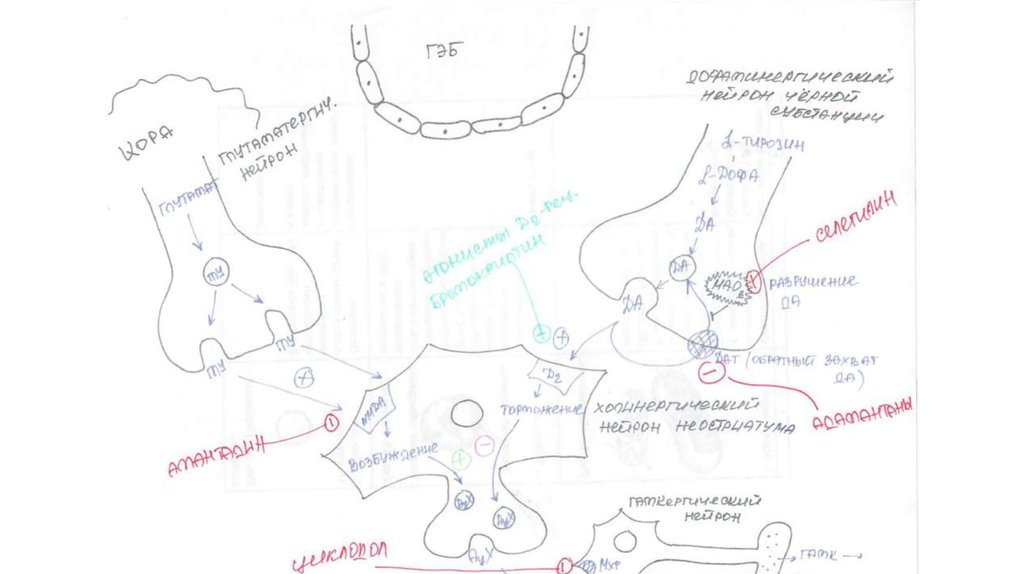 ГЭБ
КОРА
ГЛУТАМАТЕРГИЧ.
НЕЙРОН
ГЛУТАМАТ
ГЛУ
ГЛУ
ГЛУ
ДОФАМИНЕРГИЧЕСКИЙ
НЕЙРОН ЧЁРНОЙ
СУБСТАНЦИИ
L-ТИРОЗИН
L-ДОФА
ДА
ДА
ДА
МАО В
СЕЛЕГИЛИН
РАЗРУШЕНИЕ
ДА
ДАТ (ОБРАТНЫЙ ЗАХВАТ
ДА)
АДАМАНТАНЫ
АГОНИСТЫ D2-РЕЦ.
БРОМОКРИПТИН
+
+
+
D2
ТОРМОЖЕНИЕ
NMDA
ВОЗБУЖДЕНИЕ
+
−
−
АМАНТАДИН
ХОЛИНЕРГИЧЕСКИЙ
НЕЙРОН НЕОСТРИАТУМА
АцХ
АцХ
АцХ
ЦИКЛОДОЛ
ГАМКЕРГИЧЕСКИЙ
НЕЙРОН
МХР
ГАМК